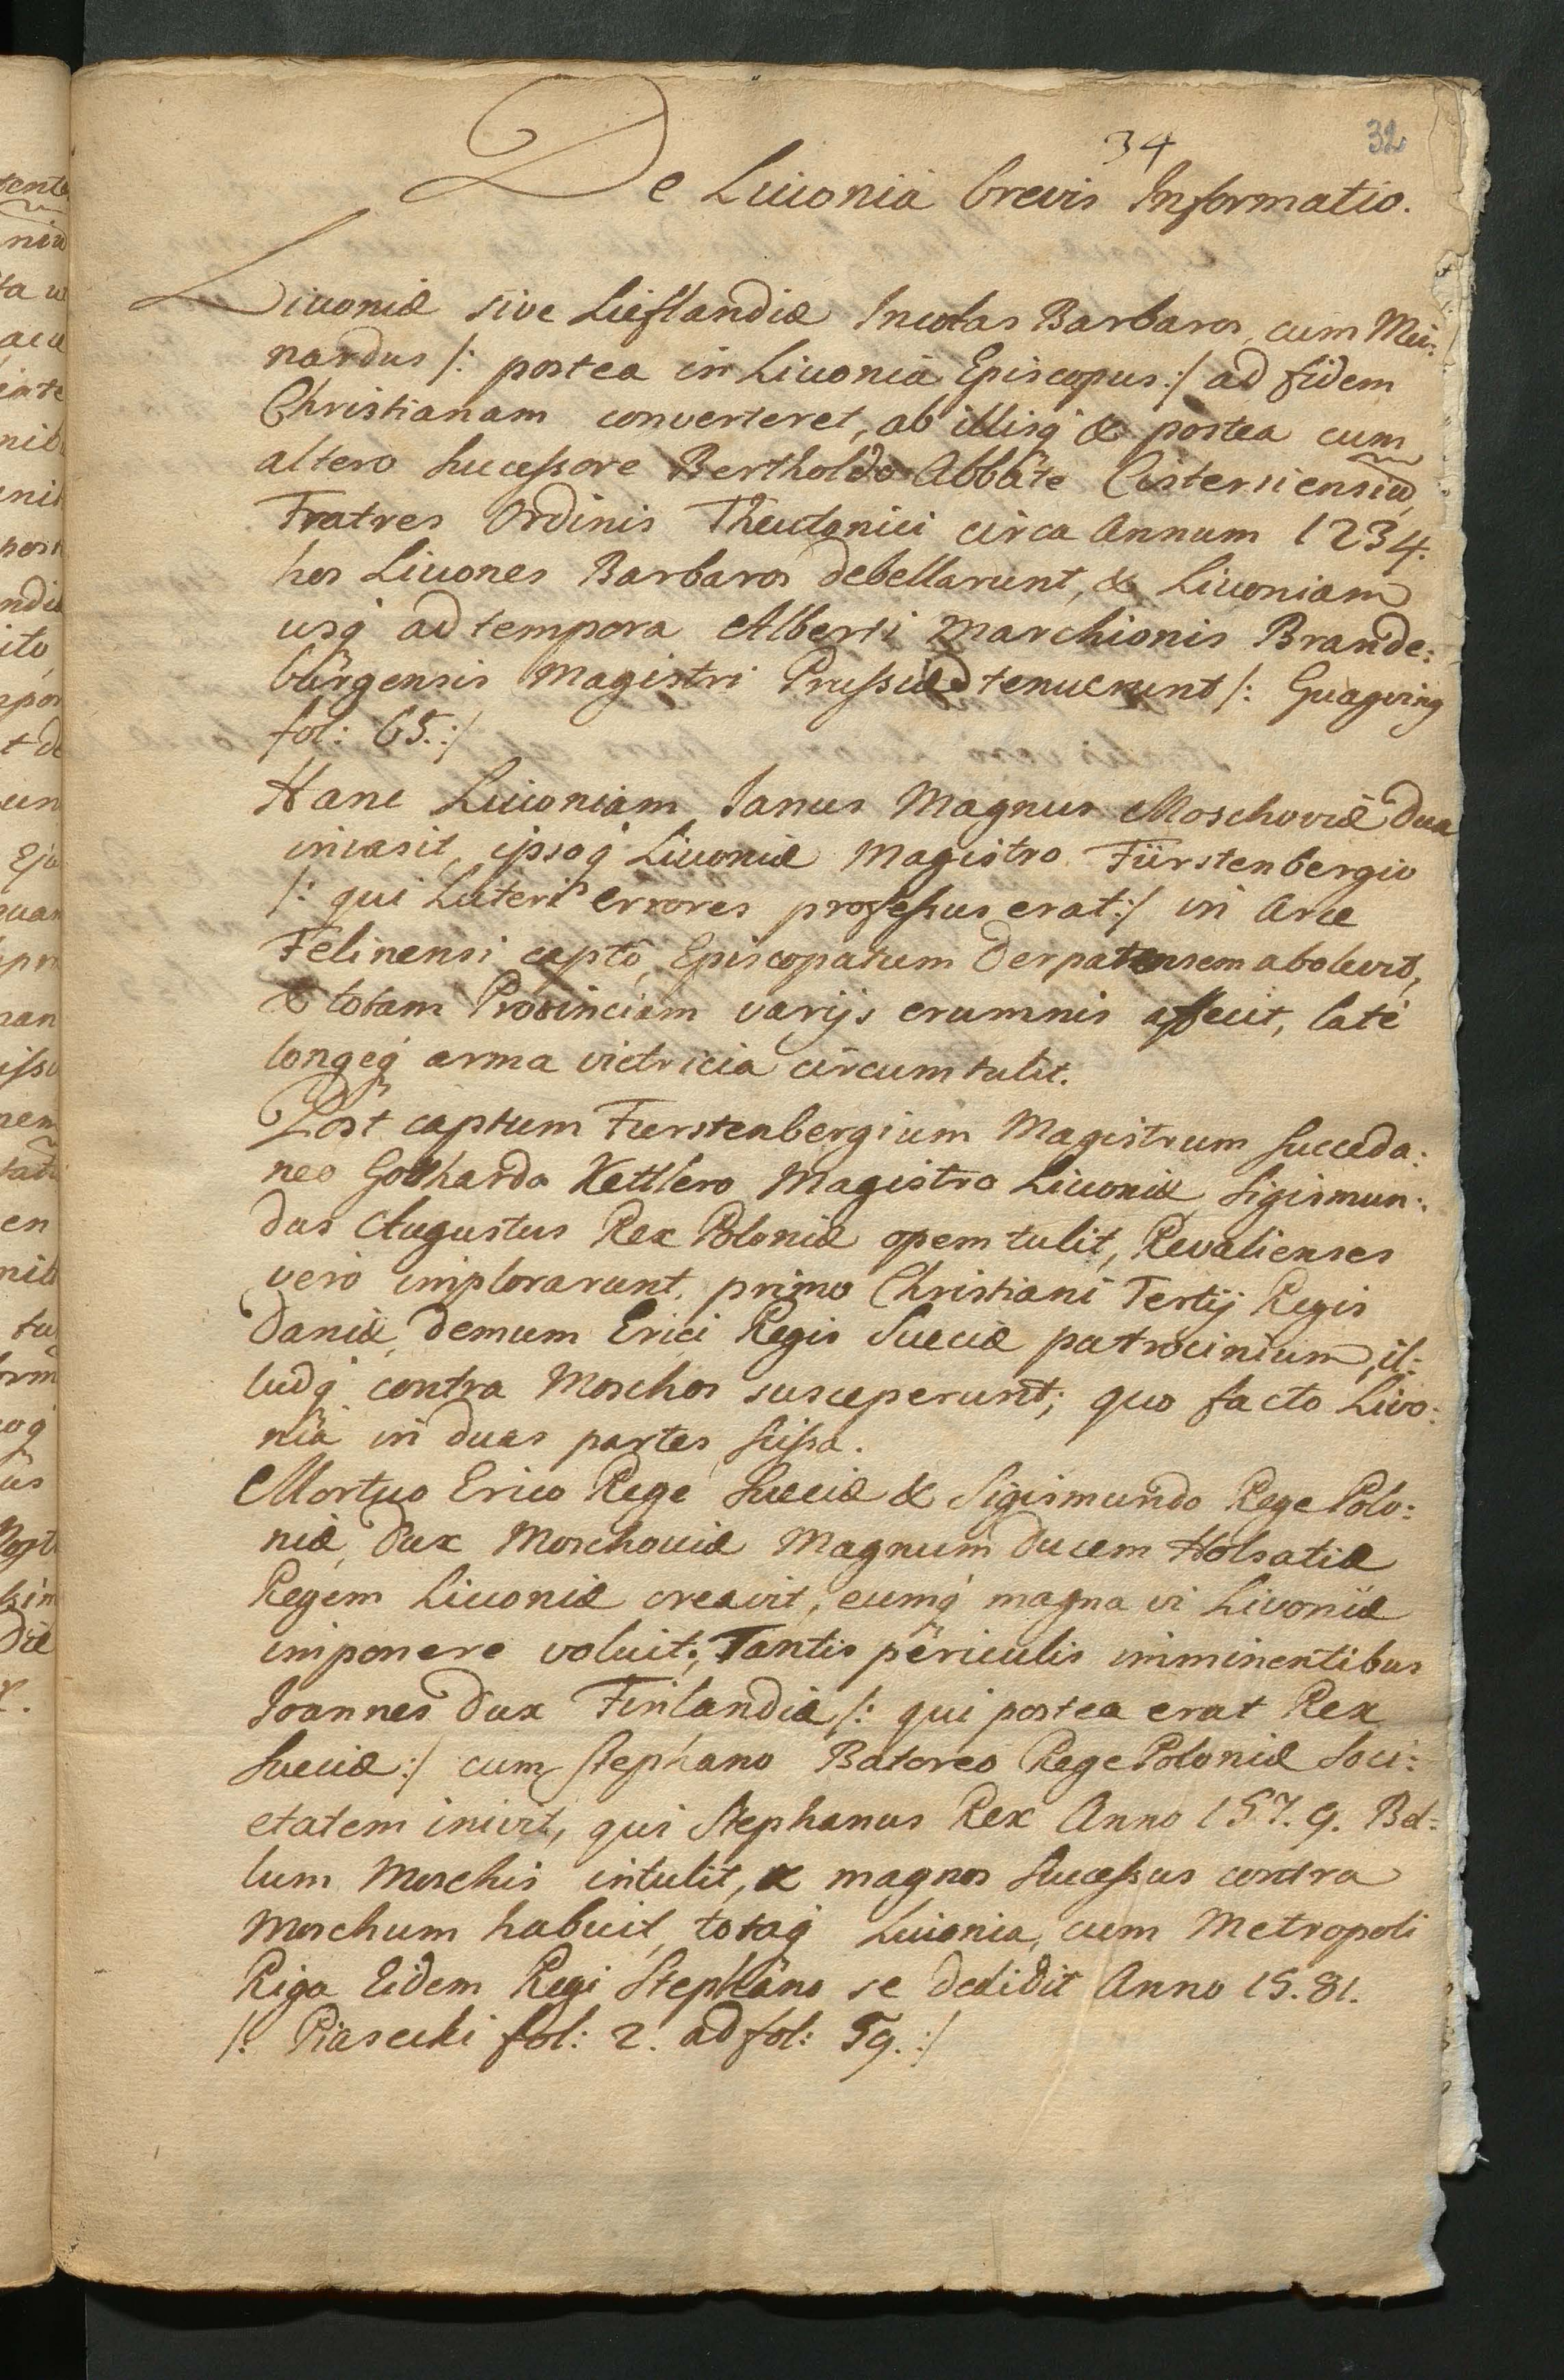 34
32
De Liuonia brevis Informatio.
Liuoniæ sive Lieflandiæ Incolas Barbaros, cum Mei:
nardus /: postea in Liuonia Episcopus :/ ad fidem
Christianam converteret, ab illisq́ & postea cum
altero Sucessore Bertholdo Abbate Cistersiensiũ,
Fratres Ordinis Theutonici circa Annum 1234.
hos Liuones Barbaros debellarunt, & Liuoniam
usq́ ad tempora Alberti Marchionis Brande:
burgensis Magistri Prussiæ tenuerunt /: Guagving
fol: 65. :/
Hanc Liuoniam Ianus Magnus Moschoviæ Dux
invasit, ipsoq́ Liuoniæ Magistro Fürstenbergio
/: qui Luteri errores professus erat :/ in Arce
Felinensi capto, Episcopatum Derpatensem abolevit,
& totam Provinciam varijs erumnis affecit, laté
longeq́ arma victricia circumtulit.
Post captum Furstenbergium Magistrum succeda:
neo Gotthardo Kettlero Magistro Liuoniæ, Sigismun:
dus Augustus Rex Poloniæ opem tulit, Revalienses
vero implorarunt, primo Christiani Tertij Regis
Daniæ, demum Erici Regis Sueciæ patrocinium, il:
ludq́ contra Moschos susceperunt; quo facto Livo:
nia in duas partes scissa.
Mortuo Erico Rege Sueciæ & Sigismundo Rege Polo:
niæ, Dux Moschouiæ Magnum Ducem Holsatiæ
Regem Liuoniæ creavit, eumq́ magna vi Livoniæ
imponere voluit; Tantis periculis imminentibus
Ioannes Dux Finlandiæ /: qui postea erat Rex
Sueciæ :/ cum Stephano Batoreo Rege Poloniæ Soci:
etatem inivit, qui Stephanus Rex Anno 157.9. Bel:
lum Moschis intulit, & magnos Sucessus contra
Moschum habuit, totaq́ Liuonia, cum Metropoli
Riga Eidem Regi Stephano se dedidit Anno 15.81.
/: Piasecki fol: 2. ad fol: 59. :/